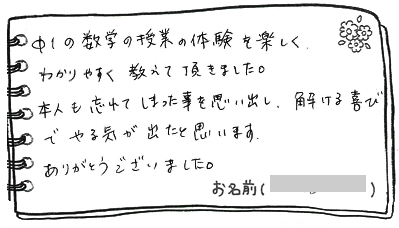 中1の数学の授業の体験を楽しく、
わかりやすく教えて頂きました。
本人も忘れてしまった事を思い出し、解ける喜び
でやる気が出たと思います。
ありがとうございました。
お名前( )